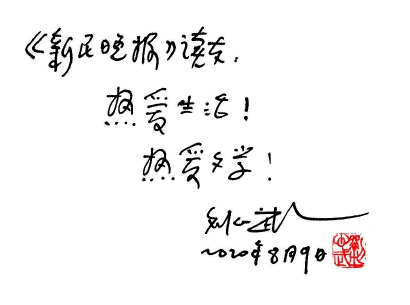 《新民晚报》读友，
热爱生活！
热爱文学！
刘心武
2020年8月9日